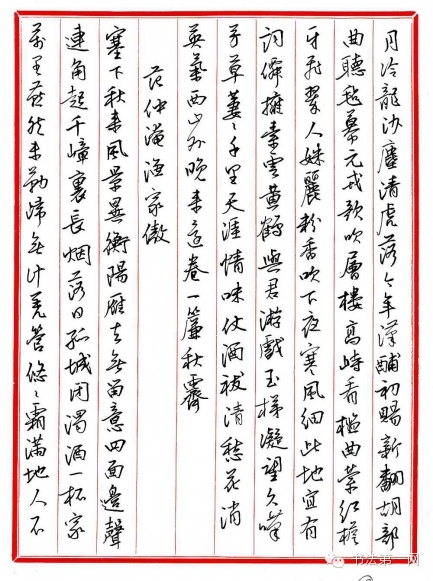 月冷龍沙塵清虎落今年漢酺初賜新翻胡部
曲聽氈幕元戎歌吹層樓高峙看檻曲縈紅檐
牙飛翠人姝麗粉香吹下夜寒風細此地宜有
詞僊擁素雲黃鶴與君游戲玉梯凝望久嘆
芳草萋々千里天涯情味仗酒祓清愁花消
英氣西山外晚來還卷一簾秋霽
范仲淹漁家傲
塞下秋來風景異衡陽雁去無留意四面邊聲
連角起千嶂裏長烟落日孤城閉濁酒一杯家
萬里燕然未勒歸無計羌管悠々霜滿地人不
书法第一网